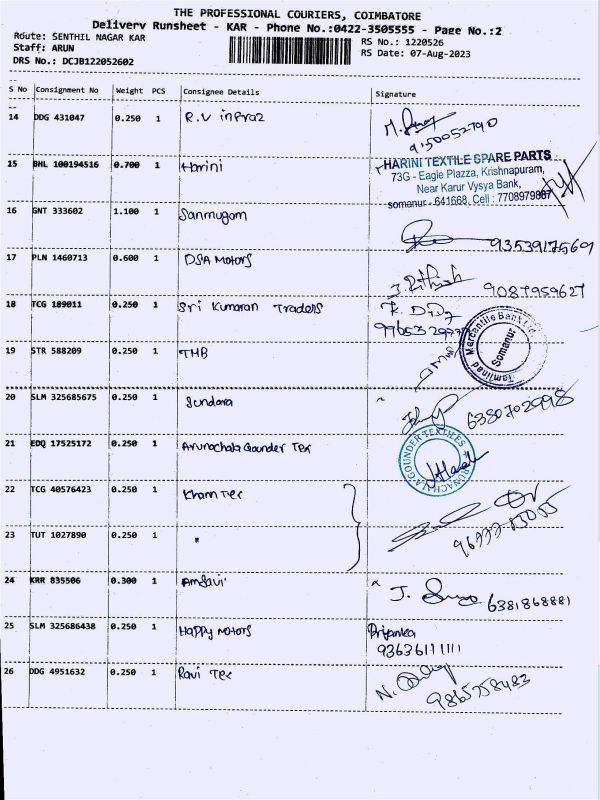 THE PROFESSIONAL COURIERS, COIMBATORE
Delivery Runsheet - KAR - Phone No.:0422-3505555 - Page No.:2
Route: SENTHIL NAGAR KAR
RS No.: 1220526
Staff: ARUN
RS Date: 07-Aug-2023
DRS No.: DCJB122052602
S No Consignment No Weight PCS Consignee Details Signature
14 DDG 431047 0.250 1 R.V
9150052790
15 BHL 100194516 0.700 1 Harini
HARINI TEXTILE SPARE PARTS
73G - Eagle Plazza, Krishnapuram,
Near Karur Vysya Bank,
somanur - 641668, Cell : 7708979887
16 GNT 333602 1.100 1 Sanmugam
9353917569
17 PLN 1460713 0.600 1 DSA Motors
9087959627
18 TCG 189011 0.250 1 Sri Kumaran Traders
Tamilnad Mercantile Bank Ltd.
Somanur
19 STR 588209 0.250 1 TMB
20 SLM 325685675 0.250 1 Sundara
6380702998
21 EDQ 17525172 0.250 1 Arunachala Gounder Tex
ARUNACHALA GOUNDER TEXTILES
22 TCG 40576423 0.250 1 Kham Tex
23 TUT 1027890 0.250 1 "
24 KRR 835506 0.300 1
J.
6381868881
25 SLM 325686438 0.250 1 Happy Motors
Priyanka
93636111111
26 DDG 4951632 0.250 1 Ravi Tex
9865758483